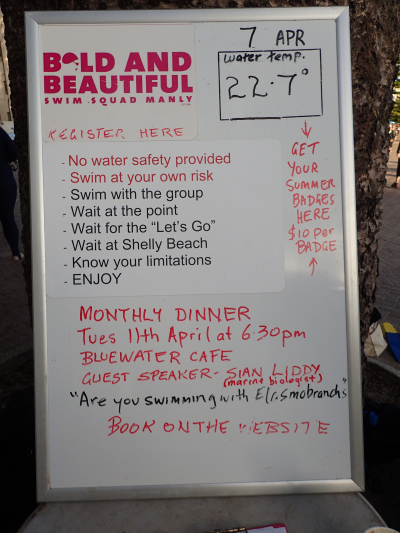 7 APR
BOLD AND
BEAUTIFUL
SWIM SQUAD MANLY
water temp.
22.7°
REGISTER HERE
- No water safety provided
- Swim at your own risk
- Swim with the group
- Wait at the point
- Wait for the “Let's Go”
- Wait at Shelly Beach
- Know your limitations
- ENJOY
GET
YOUR
SUMMER
BADGES
HERE
$10 per
BADGE
MONTHLY DINNER
Tues 11th April at 6:30pm
BLUEWATER CAFE
GUEST SPEAKER - SIAN LIDDY
(marine biologist)
"Are you swimming with Elasmobranchs"
BOOK ON THE WEBSITE